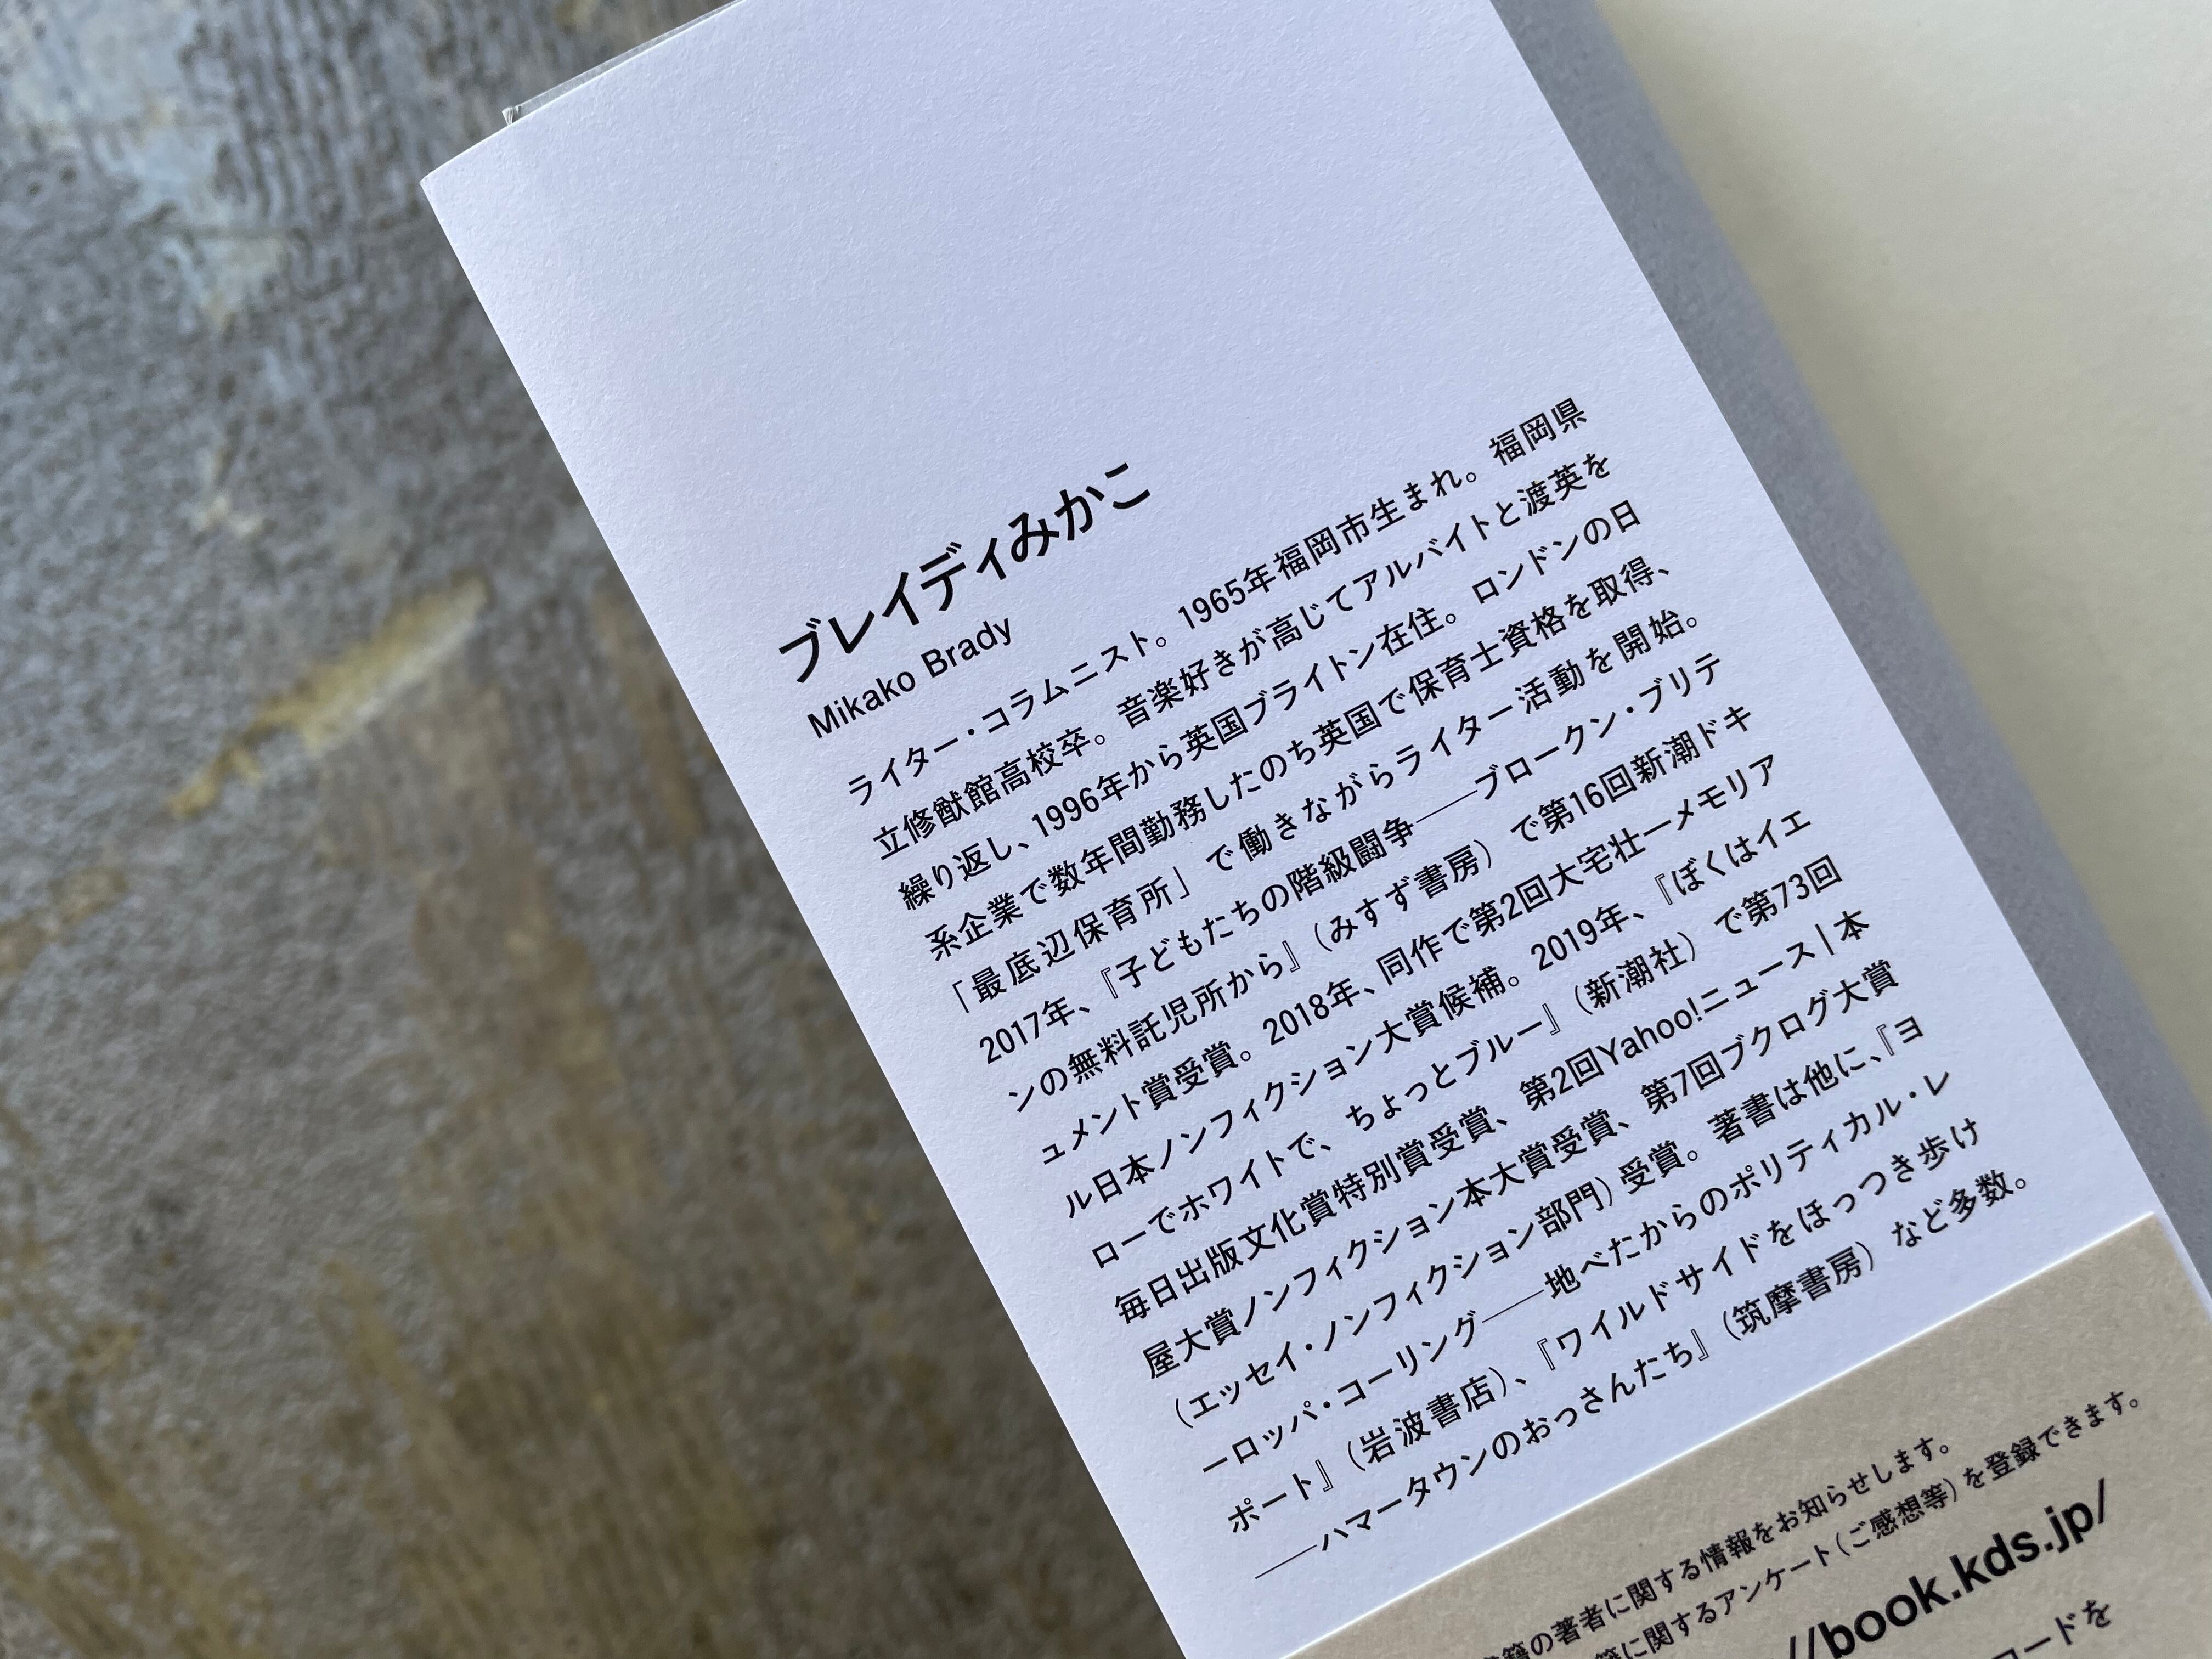 ブレイディみかこ
Mikako Brady
ライター・コラムニスト。1965年福岡市生まれ。福岡県
立修猷館高校卒。音楽好きが高じてアルバイトと渡英を
繰り返し、1996年から英国ブライトン在住。ロンドンの日
系企業で数年間勤務したのち英国で保育士資格を取得、
「最底辺保育所」で働きながらライター活動を開始。
2017年、『子どもたちの階級闘争――ブロークン・ブリテ
ンの無料託児所から』(みすず書房)で第16回新潮ドキ
ュメント賞受賞。2018年、同作で第2回大宅壮一メモリア
ル日本ノンフィクション大賞候補。2019年、『ぼくはイエ
ローでホワイトで、ちょっとブルー』(新潮社)で第73回
毎日出版文化賞特別賞受賞、第2回Yahoo!ニュース|本
屋大賞ノンフィクション本大賞受賞、第7回ブクログ大賞
(エッセイ・ノンフィクション部門)受賞。著書は他に、『ヨ
ーロッパ・コーリング――地べたからのポリティカル・レ
ポート』(岩波書店)、『ワイルドサイドをほっつき歩け
――ハマータウンのおっさんたち』(筑摩書房)など多数。
籍の著者に関する情報をお知らせします。
籍に関するアンケート(ご感想等)を登録できます。
//book.kds.jp/
コードを